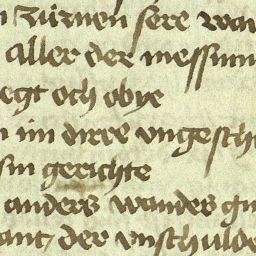 n zürnen sere wa
aller der messun
egt och obye
n im dirre vngesch
sin gerichte
anders wandes gu
ant der vnschulde